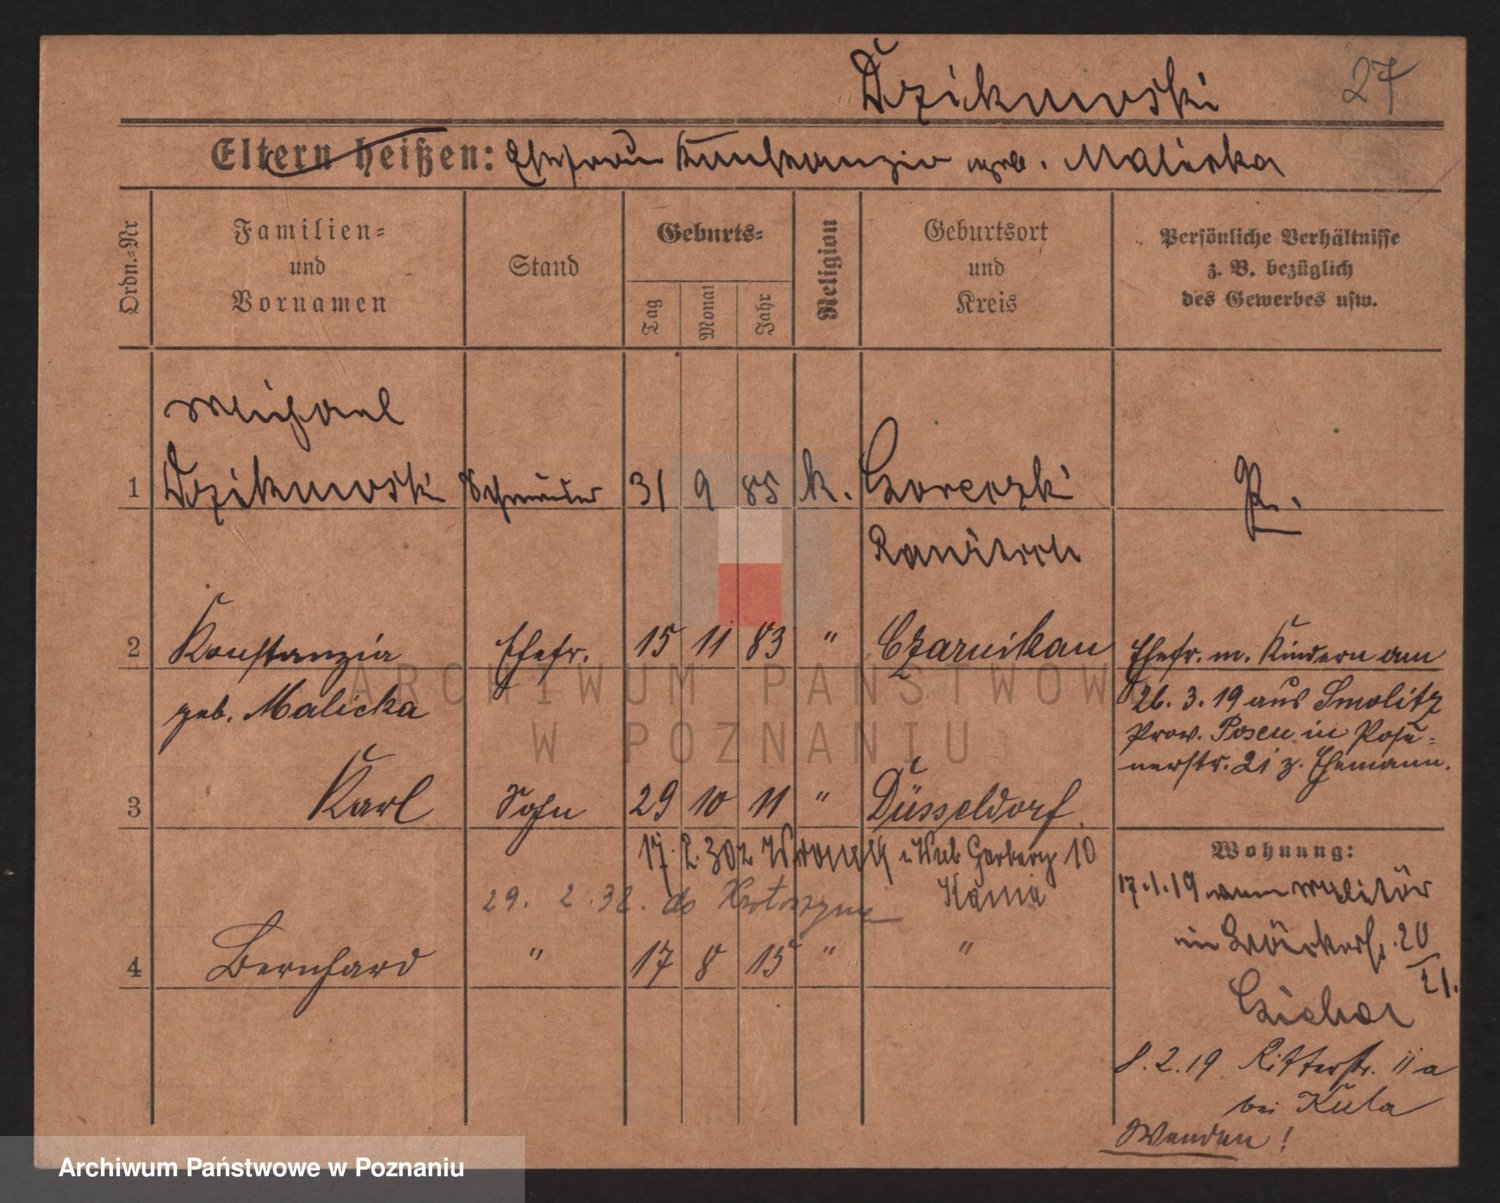 Dzikowski 27
Eltern heißen: Ehefrau Konstanzia geb. Malicka
Ordn.-Nr
Familien- und Vornamen
Stand
Geburts-
Tag
Monat
Jahr
Religion
Geburtsort und Kreis
Persönliche Verhältnisse z. B. bezüglich des Gewerbes usw.
Michael
1 Schneider 31 9 85 k.
2 Konstanzia Ehefr. 15 11 83 " Czarnikau
geb. Malicka
Ehefr. m. Kindern am
26. 3. 19 aus Smolitz
Prov. Posen in Pose-
nerstr. 21 z. Ehemann.
3 Karl Sohn 29 10 11 " Düsseldorf
17. 2. 30 Garbary 10
29. 2. 32. do Krotoszyna
4 Bernhard " 17 8 15 " "
Wohnung:
17.1.19 vom Militär
20/21.
8. 2. 19 Ritterstr. 11a
bei Kula
Wenden!
ARCHIWUM PAŃSTWOWE
W POZNANIU
Archiwum Państwowe w Poznaniu